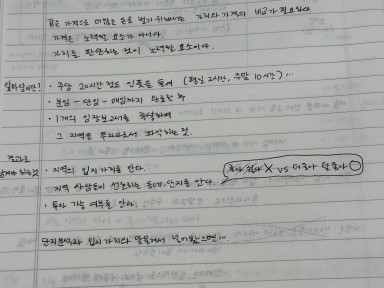 같은 가격으로 더 많은 돈을 벌기 위해서는 가치와 가격의 비교가 필요하다
가격은 노력할 요소가 아니다.
가치를 판단하는 것이 노력할 요소이다.
· 주당 20시간 정도 인풋을 들여 (평일 2시간, 주말 10시간) …
· 분임 - 단임 - 매임까지 완료한 후
· 1개의 임장보고서를 작성하여
그 지역을 무리으로서 파악하는 것.
결과로
· 지역의 입지가치를 안다.
· 지역 사람들이 선호하는 동네, 단지를 안다.
X vs 더 좋아 덜 좋아 O
· 투자 가능 여부를 안다.
단지분석과 입지 가치와